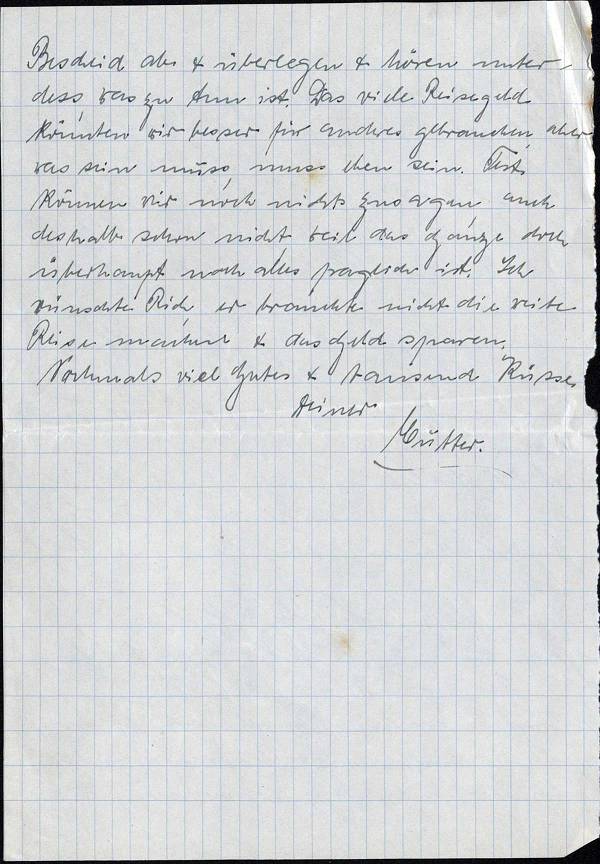 Bescheid ab & überlegen & hören unter-
dess was zu tun ist. Das viele Reisegeld
könnten wir besser für anderes gebrauchen aber
was sein muss, muss eben sein. Fest
können wir noch nichts zusagen auch
deshalb schon nicht weil das Ganze doch
überhaupt noch alles fraglich ist. Ich
wünschte Rich er brauchte nicht die weite
Reise machen & das Geld sparen.
Nochmals viel Gutes & tausend Küsse
Deiner
Mutter.